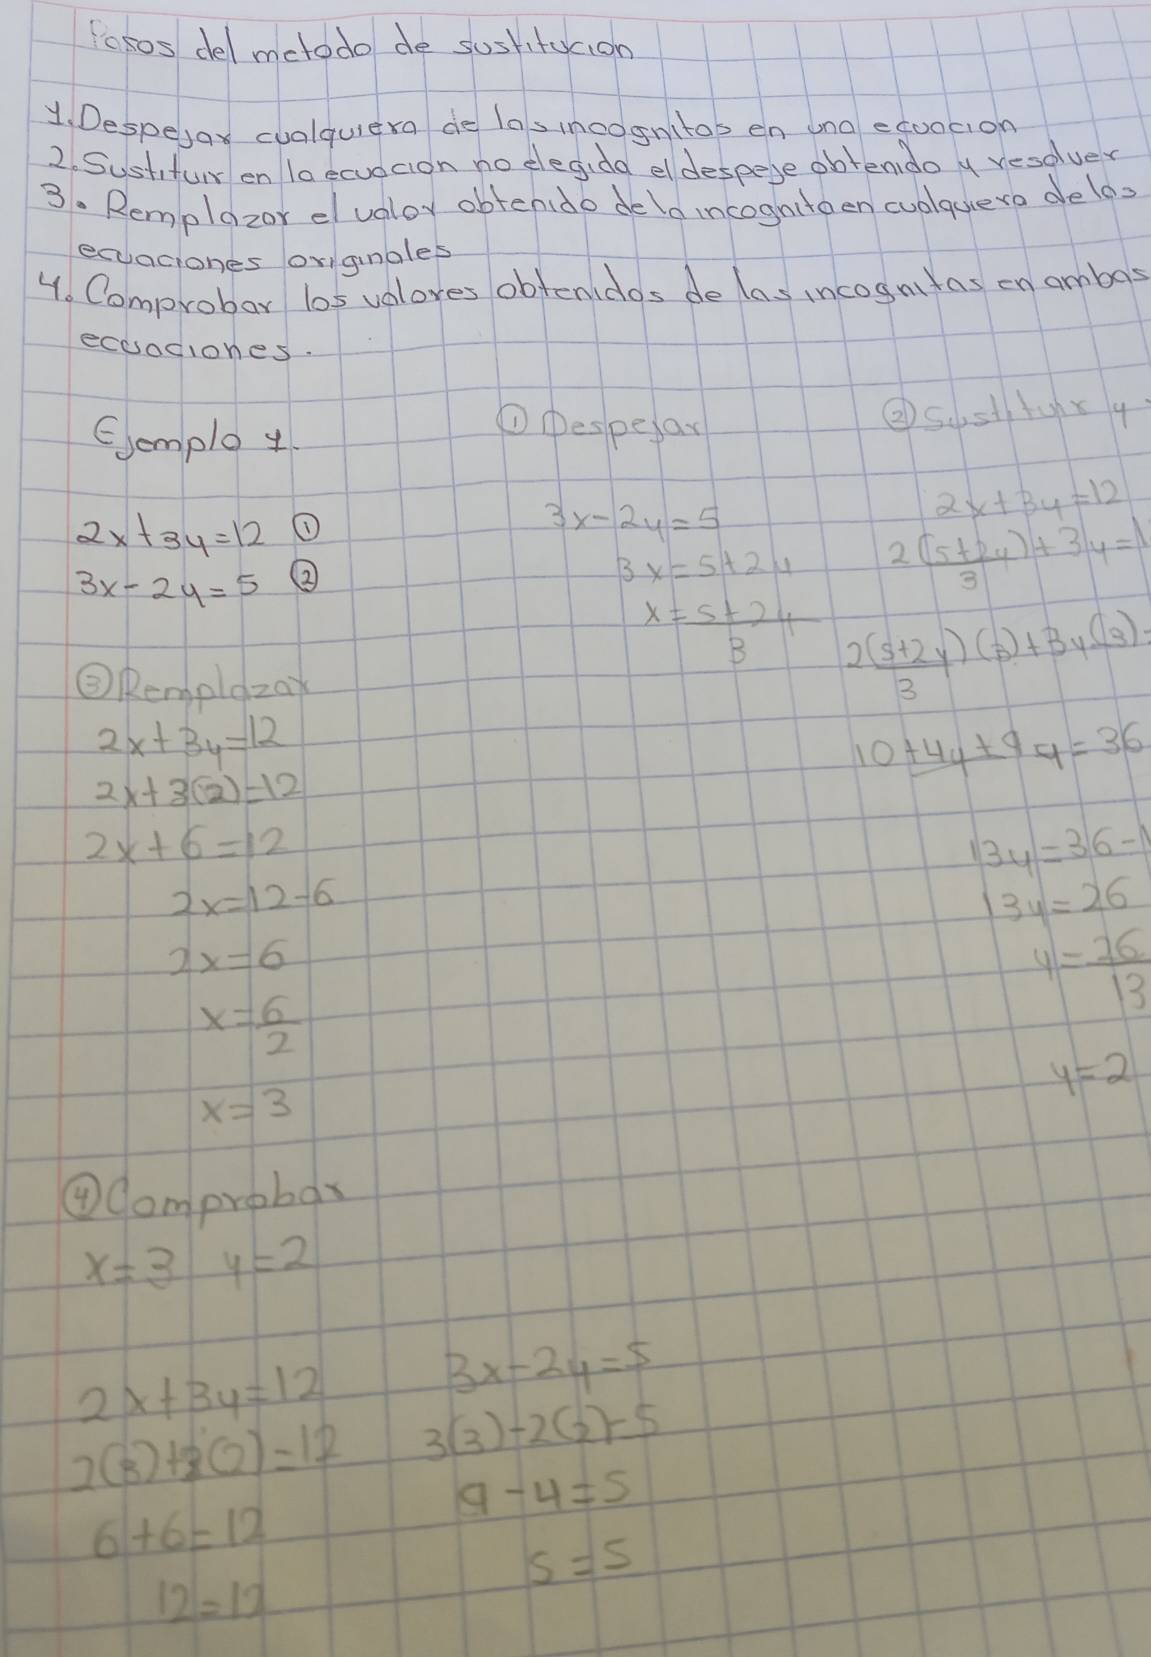 Pasos del metodo de sustitucion
1. Despejar cualquiera de las incognitas en una ecuacion
2. Sustituir en la ecuacion no elegida el despeje obtenido y resolver
3. Remplazar el valor obtenido de la incognita en cualquiera de las
ecuaciones originales
4. Comprobar los valores obtenidos de las incognitas en ambas
ecuaciones.
Ejemplo 1.
2x+3y=12 ①
3x-2y=5 ②
① Despejar
3x-2y=5
3x=5+2y
x=5+2y
3
② Sustituir y
2x+3y=12
2(5+2y)+3y=1
3
2(5+2y)(3)+3y(3)=
3
10+4y+9y=36
13y=36-1
13y=26
y=26
13
y=2
③ Remplazar
2x+3y=12
2x+3(2)=12
2x+6=12
2x=12-6
2x=6
x=6
2
x=3
④ Comprobar
x=3 y=2
2x+3y=12
2(3)+3(2)=12
6+6=12
12=12
3x-2y=5
3(3)-2(2)=5
9-4=5
5=5